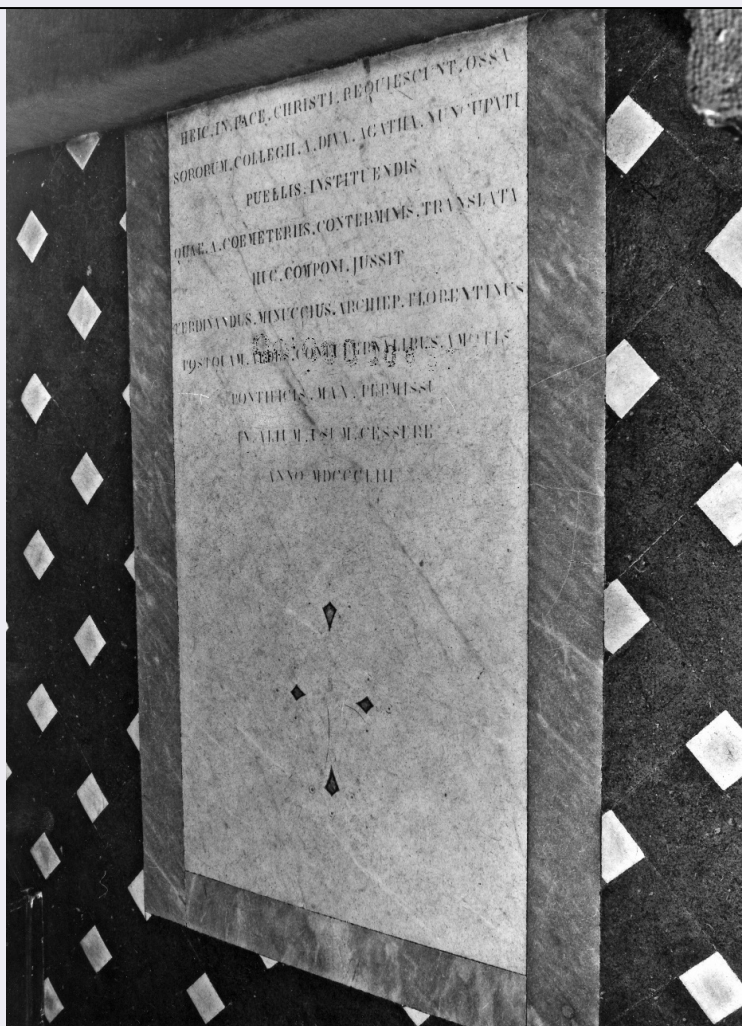 HEIC. IN. PACE. CHRISTI. REQUIESCUNT. OSSA
SORORUM. COLLEGII. A. DIVA. AGATHA. NUNCUPATI
PUELLIS. INSTITUENDIS
QUAE. A. COEMETERIIS. CONTERMINIS. TRANSLATA
HUC. COMPONI. JUSSIT
FERDINANDUS. MINUCCIUS. ARCHIEP. FLORENTINUS
POSTQUAM. AMOTIS
PONTIFICIS. MAX. PERMISSU
IN. ALIUM. USUM. CESSERE
ANNO MDCCCLIII